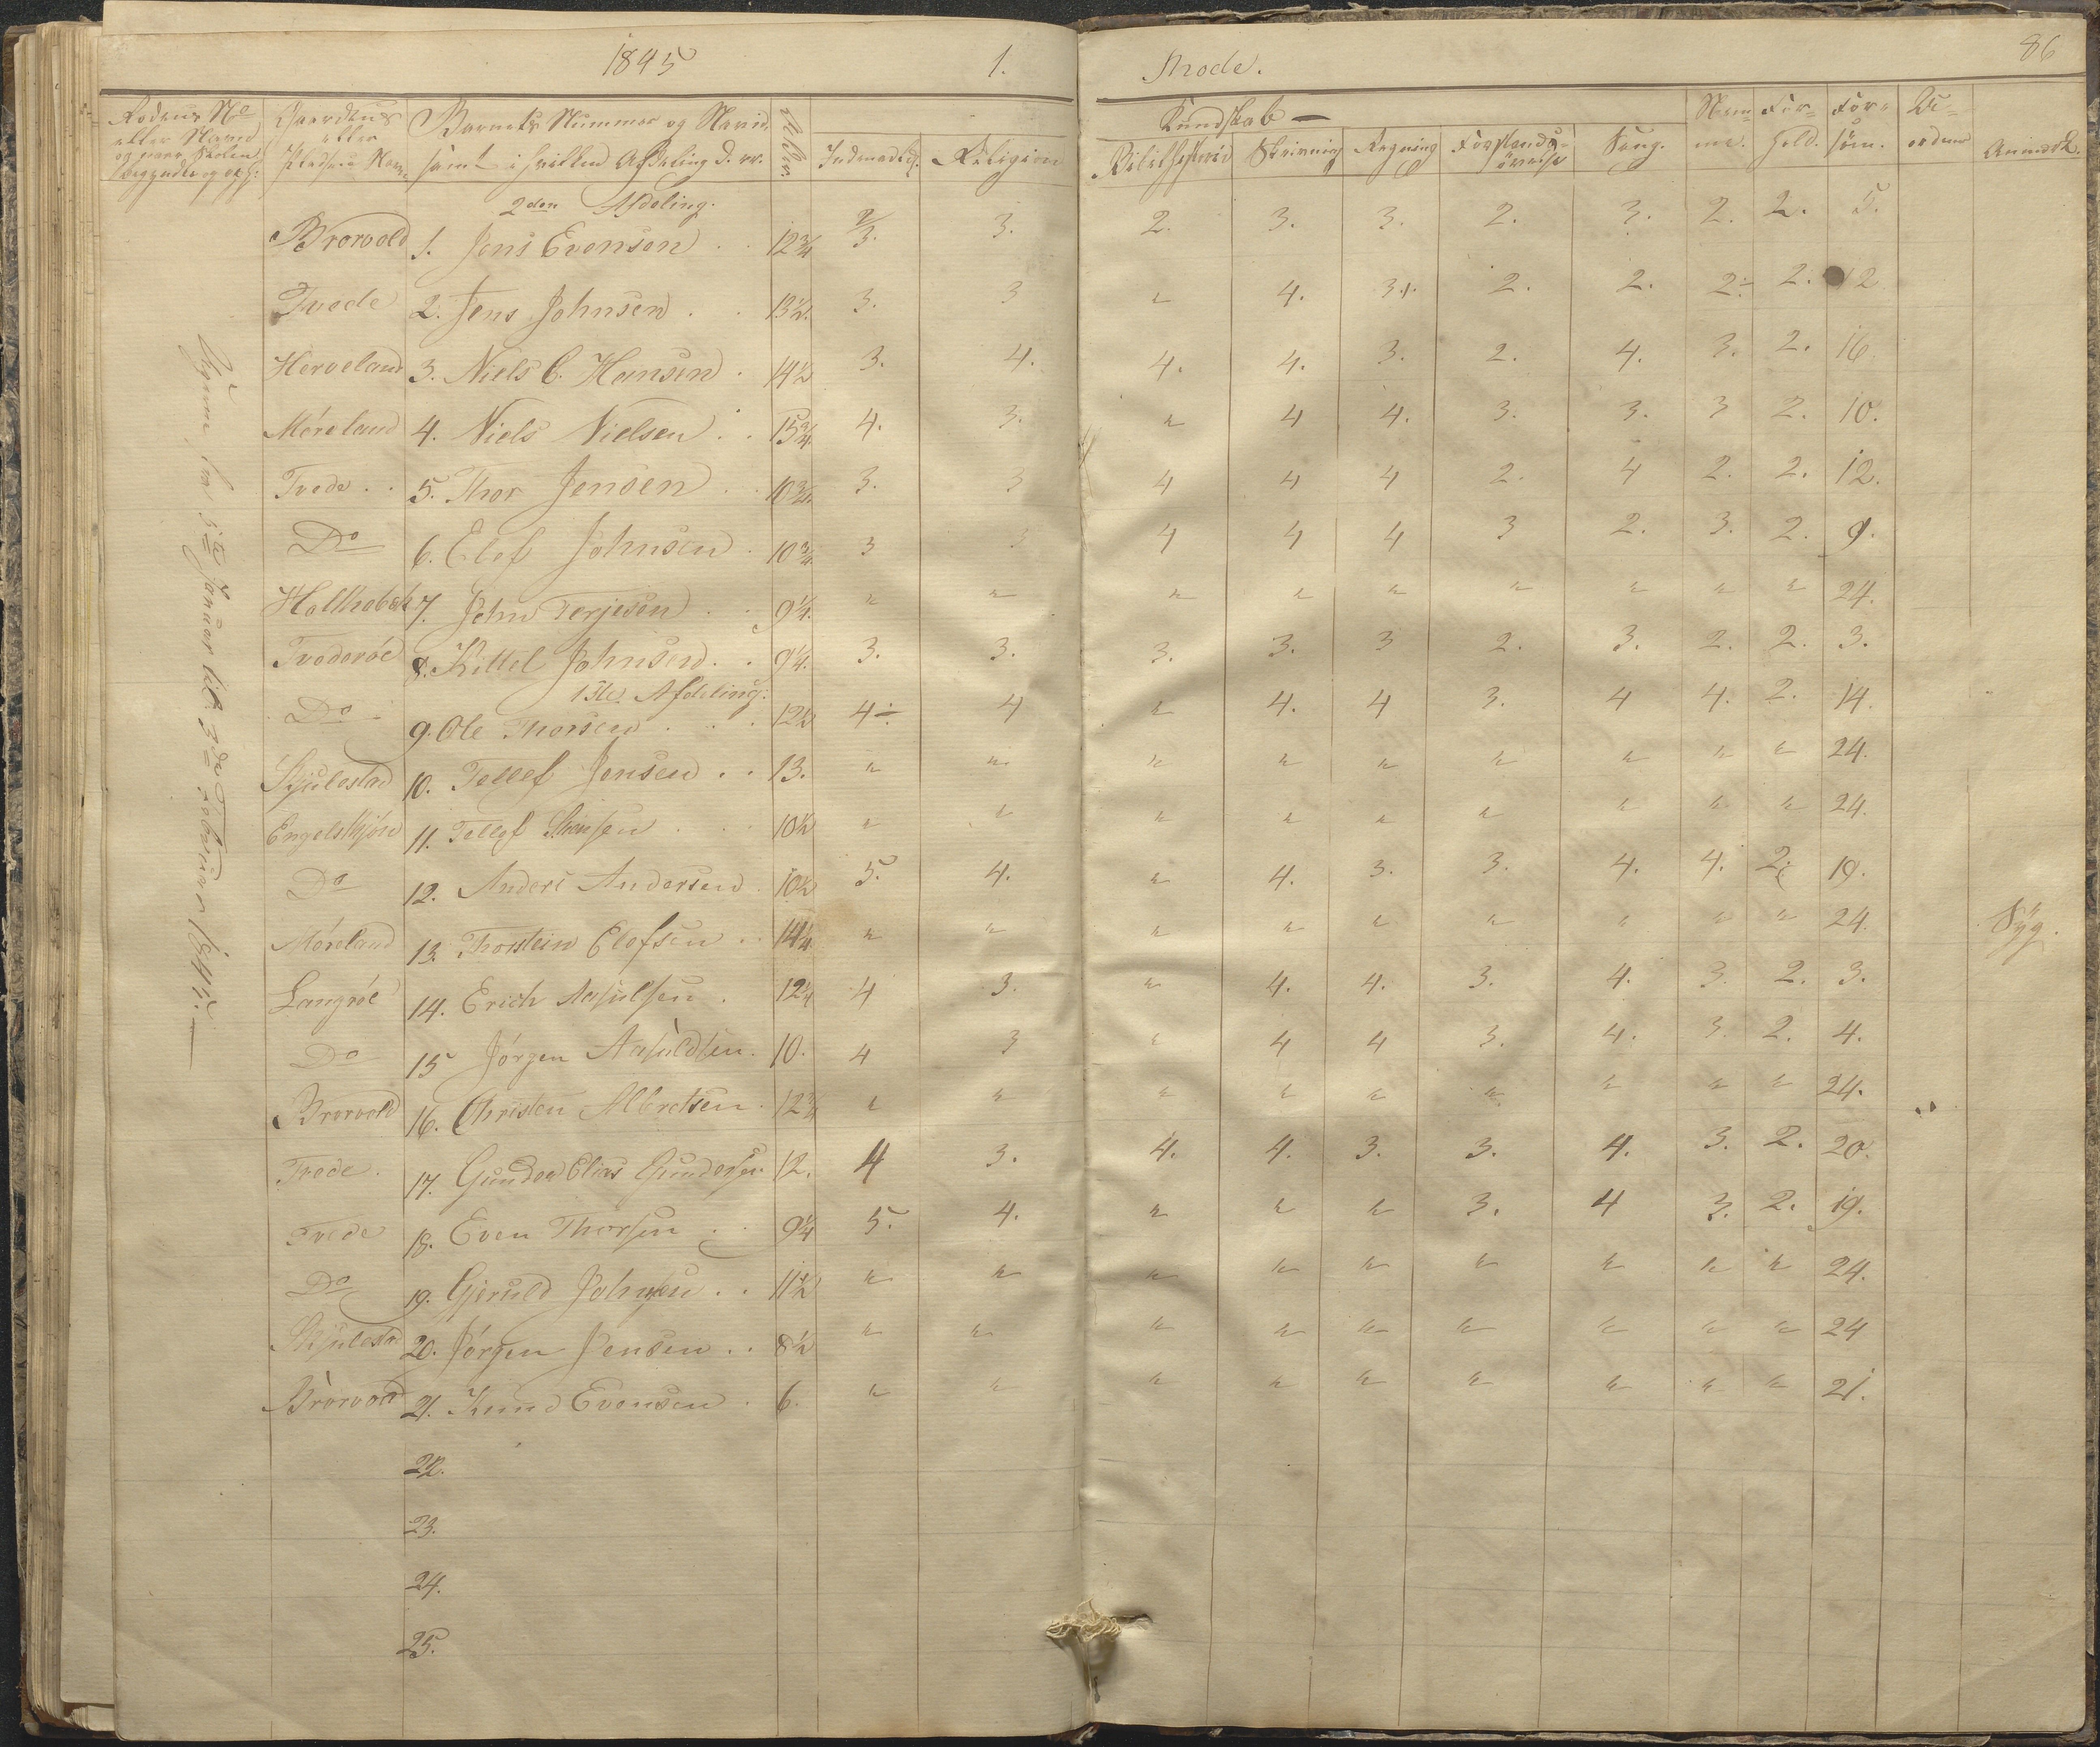 1845 1. Rode. 86
Rodens No Gaardens Barnets Nummer og Navn, Alder. Kundskab — Nem- For- For- Uorden
eller Navn eller samt i hvilken Afdeling d. er. Indenadlæs. Religion Bibelhistorie Skrivning Regning Forstands- Sang. me. hold. søm. Anmærk.
og naar Skolen Pladsens Navn øvelse
begyndte og
2den Afdeling.
Brorvold 1. Jens Evensen . . 12 3/4 2/3. 3. 2. 3. 3. 2. 3. 2. 2. 5.
Tvede 2. Jens Johnsen . . 13 1/2. 3. 3 " 4. 3+. 2. 2. 2÷ 2. 12
Herveland 3. Niels C. Hansen . 14 1/2 3. 4. 4. 4. 3. 2. 4. 3. 2. 16.
Möreland 4. Niels Nielsen . . 15 3/4. 4. 3. " 4 4. 3. 3. 3 2. 10.
Tvede . . 5. Thor Jensen . . 10 3/4. 3. 3 4 4 4 2. 4 2. 2. 12.
Do 6. Elef Johnsen . 10 3/4. 3 3 4 4 4 3 2. 3. 2. 9.
7. John Terjesen . . 9 1/4. " " " " " " " " " 24.
Tvederöe 8. Kittel Johnsen . . 9 1/4. 3. 3. 3. 3. 3 2. 3. 2. 2. 3.
1ste Afdeling:
Do 9. Ole Thorsen . . . 12 1/2 4÷ 4 " 4. 4 3. 4 4. 2. 14.
Skjulestad 10. Tellef Jensen . . 13. " " " " " " " " " 24.
Engelskjøn 11. Tellef . . 10 1/2 " " " " " " " " " 24.
Do 12. Anders Andersen . 10 1/2 5. 4. " 4. 3. 3. 4. 4. 2. 19.
Möreland 13. Thorstein Elefsen . . 14 1/4 " " " " " " " " " 24. Syg.
Langröe 14. Erich Aasulsen . 12 1/4 4 3. " 4. 4. 3. 4. 3. 2. 3.
Do 15 Jörgen Aasuldsen. 10. 4 3 " 4 4 3. 4. 3. 2. 4.
Brorvold 16. Christen Albretsen . 12 3/4 " " " " " " " " " 24.
Tvede . 17. Gunder Elias Gundersen. 12. 4 3. 4. 4. 3. 3. 4. 3. 2. 20.
Tvede 18. Even Thorsen . . 9 1/4 5. 4. " " " 3. 4 3. 2. 19.
Do 19. Gjeruld Johnsen . . 11 1/2 " " " " " " " " " 24.
Skjulestad 20. Jörgen Jensen . . 8 1/2 " " " " " " " " " 24
Brorvold 21. Knud Evensen . 6. " " " " " " " " " 21.
22.
23.
24.
25.
fra Januar til 3de Februar 1845. —